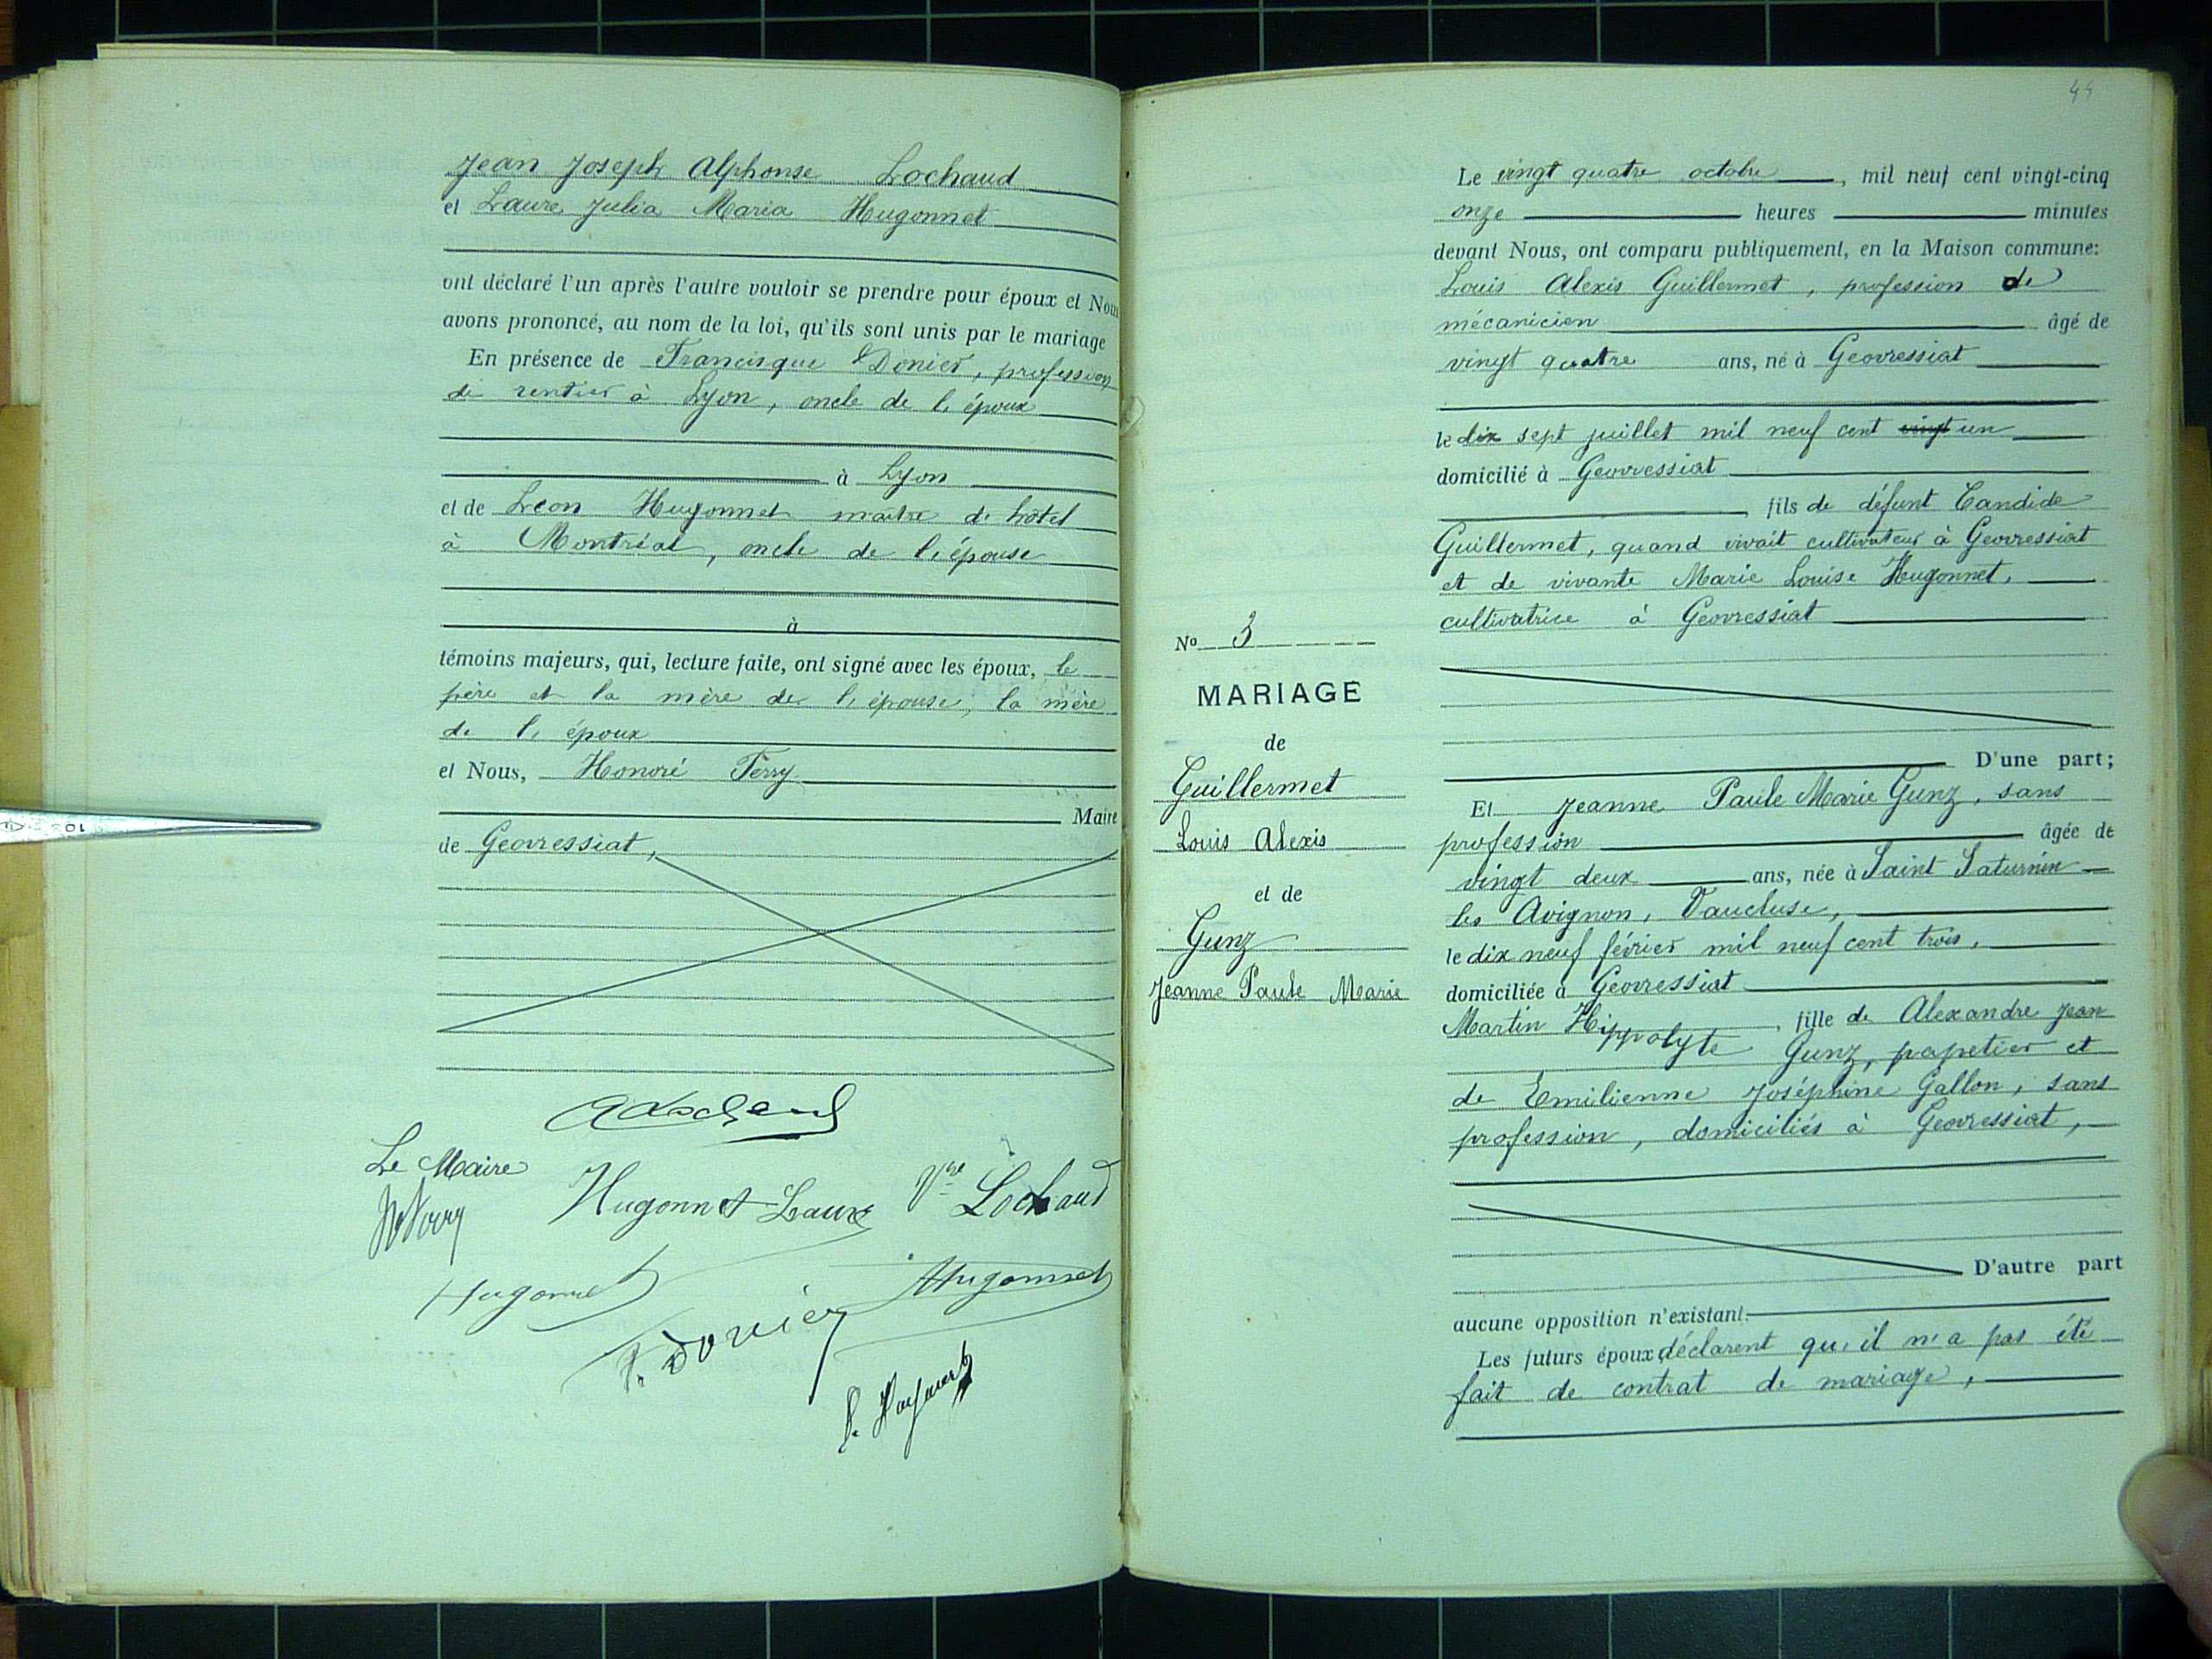 Jean Joseph Alphonse Lochaud
et Laure Julia Maria Hugonnet
ont déclaré l'un après l'autre vouloir se prendre pour époux et Nous
avons prononcé, au nom de la loi, qu'ils sont unis par le mariage
En présence de Francisque Donier, profession
de rentier à Lyon, oncle de l'époux
à Lyon
et de Léon Hugonnet maître d'hôtel
à Montréal, oncle de l'épouse
à
témoins majeurs, qui, lecture faite, ont signé avec les époux, le
père et la mère de l'épouse, la mère
de l'époux
et Nous, Honoré Ferry
Maire
de Geovressiat,
Le Maire
Hugonnet Laure Vve Lochaud
Hugonnet
Hugonnet
F. Donier
44
Le vingt quatre octobre, mil neuf cent vingt-cinq
onze heures minutes
devant Nous, ont comparu publiquement, en la Maison commune:
Louis Alexis Guillermet, profession de
mécanicien âgé de
vingt quatre ans, né à Geovressiat
le dix sept juillet mil neuf cent vingt un
domicilié à Geovressiat
fils de défunt Candide
Guillermet, quand vivait cultivateur à Geovressiat
et de vivante Marie Louise Hugonnet,
cultivatrice à Geovressiat
D'une part;
No 3
MARIAGE
de
Guillermet
Louis Alexis
et de
Gunz
Jeanne Paule Marie
Et Jeanne Paule Marie Gunz, sans
profession âgée de
vingt deux ans, née à Saint Saturnin
les Avignon, Vaucluse,
le dix neuf février mil neuf cent trois,
domiciliée à Geovressiat
Martin Hippolyte , fille de Alexandre Jean
Gunz, papetier et
de Emilienne Joséphine Gallon, sans
profession, domiciliés à Geovressiat,
D'autre part
aucune opposition n'existant.
Les futurs époux déclarent qu'il n'a pas été
fait de contrat de mariage,